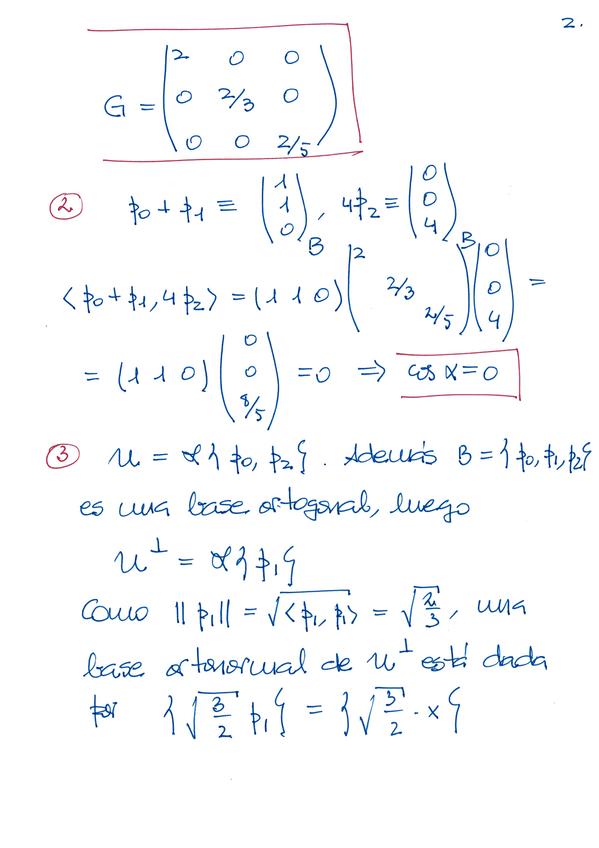 2.
G = \begin{pmatrix} 2 & 0 & 0 \\ 0 & 2/3 & 0 \\ 0 & 0 & 2/5 \end{pmatrix}
② p₀ + p₁ ≡ \begin{pmatrix} 1 \\ 1 \\ 0 \end{pmatrix}_B , 4p₂ ≡ \begin{pmatrix} 0 \\ 0 \\ 4 \end{pmatrix}_B
<p₀ + p₁, 4p₂> = (1 1 0) \begin{pmatrix} 2 & & \\ & 2/3 & \\ & & 2/5 \end{pmatrix} \begin{pmatrix} 0 \\ 0 \\ 4 \end{pmatrix} =
= (1 1 0) \begin{pmatrix} 0 \\ 0 \\ 8/5 \end{pmatrix} = 0 ⇒ cos α = 0
③ U = ℒ{p₀, p₂}. Además B = {p₀, p₁, p₂}
es una base ortogonal, luego
U^⊥ = ℒ{p₁}
Como ||p₁|| = √<p₁, p₁> = √(2/3), una
base ortonormal de U^⊥ está dada
por {√(3/2) p₁} = {√(3/2) · x}